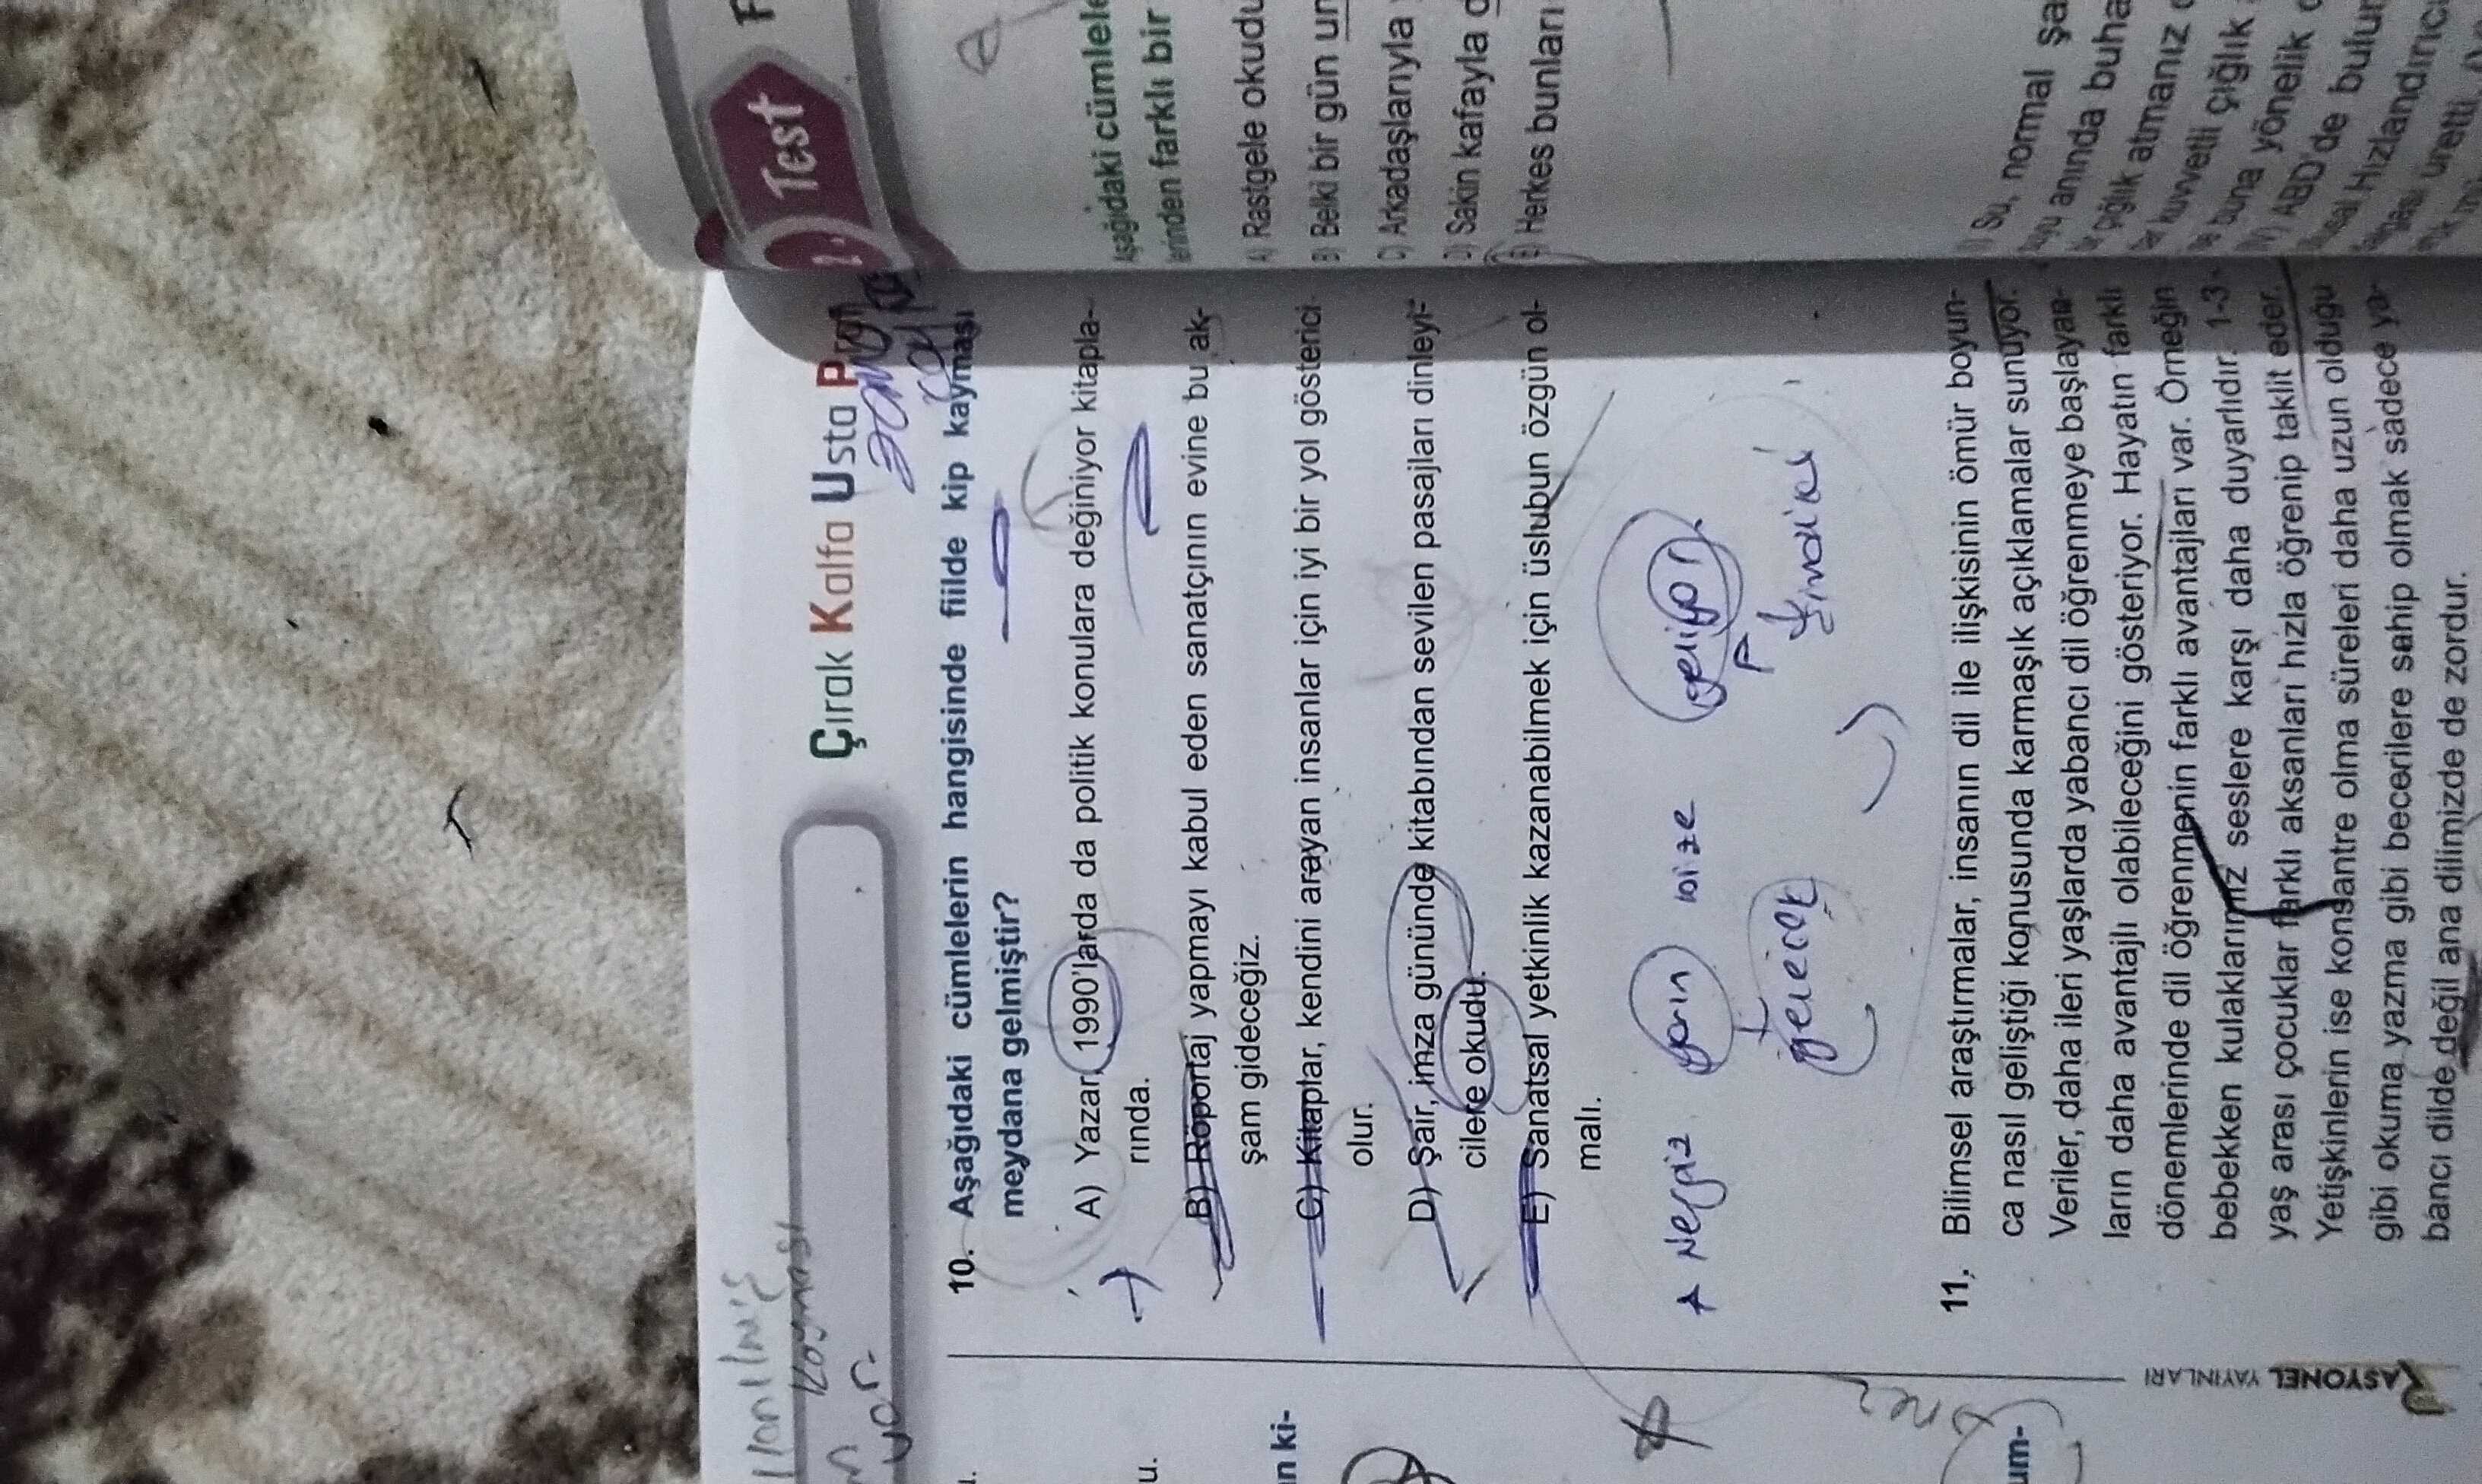 Çırak Kalfa Usta
10. Aşağıdaki cümlelerin hangisinde fiilde kip kayması
meydana gelmiştir?
A) Yazar, 1990'larda da politik konulara değiniyor kitapla-
rında.
B) Röportaj yapmayı kabul eden sanatçının evine bu ak-
şam gideceğiz.
C) Kitaplar, kendini arayan insanlar için iyi bir yol gösterici
olur.
D) Şair, imza gününde kitabından sevilen pasajları dinleyi-
cilere okudu.
E) Sanatsal yetkinlik kazanabilmek için üslubun özgün ol-
malı.
Nergiz yarın bize geliyor
gelecek
şimdiki
11. Bilimsel araştırmalar, insanın dil ile ilişkisinin ömür boyun-
ca nasıl geliştiği konusunda karmaşık açıklamalar sunuyor.
Veriler, daha ileri yaşlarda yabancı dil öğrenmeye başlayan-
ların daha avantajlı olabileceğini gösteriyor. Hayatın farklı
dönemlerinde dil öğrenmenin farklı avantajları var. Örneğin
bebekken kulaklarımız seslere karşı daha duyarlıdır. 1-3
yaş arası çocuklar farklı aksanları hızla öğrenip taklit eder.
Yetişkinlerin ise konsantre olma süreleri daha uzun olduğu
gibi okuma yazma gibi becerilere sahip olmak sadece ya-
bancı dilde değil ana dilimizde de zordur.
RASYONEL YAYINLARI
kayması
var.
u.
n ki-
um-
Test
Aşağıdaki cümlele
erinden farklı bir
A) Rastgele okudu
B) Belki bir gün un
C) Arkadaşlarıyla
D) Sakin kafayla
E) Herkes bunları
Su, normal şa
anında buha
çığlık atmanız
kuvvetli çığlık
buna yönelik
(IV) ABD'de bulun
Hızlandırıcı
üretti.